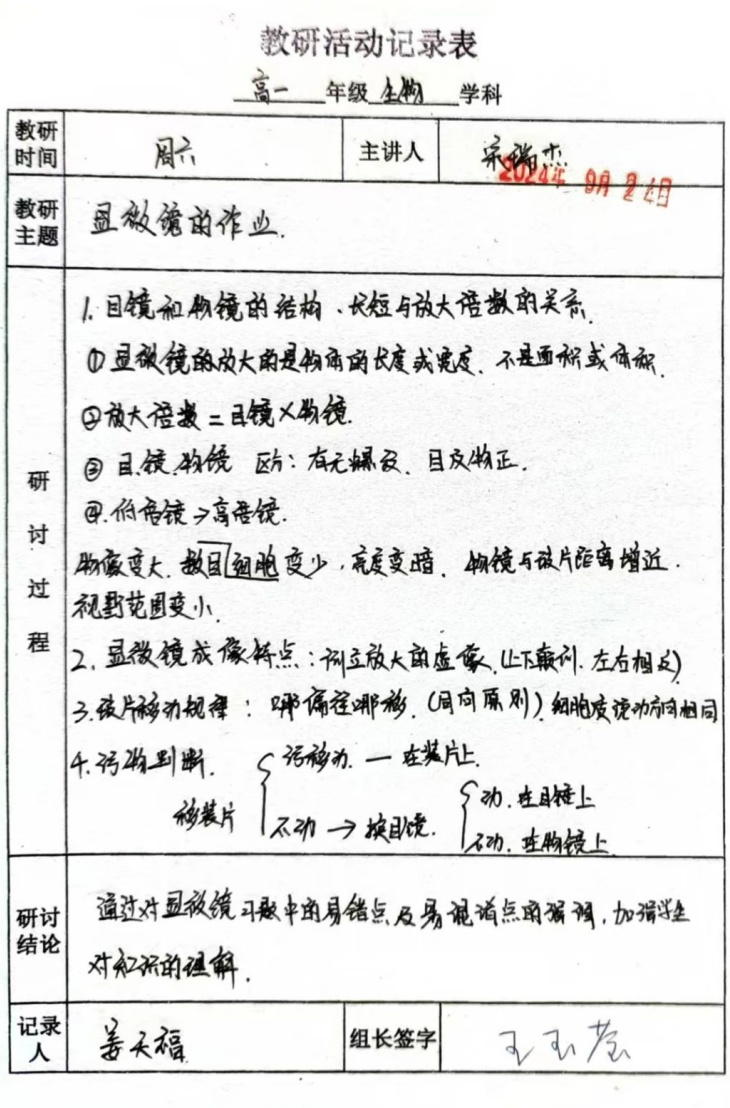 教研活动记录表
高一 年级 生物 学科
教研时间 周六 主讲人 宋瑞杰
2024年 9月 24日
教研主题 显微镜的作业.
研讨过程
1. 目镜和物镜的结构、长短与放大倍数的关系.
①显微镜的放大的是物体的长度或宽度、不是面积或体积.
②放大倍数=目镜×物镜.
③目镜、物镜 区分: 有无螺纹、目反物正.
④.低倍镜→高倍镜.
物像变大、数目细胞变少、亮度变暗、物镜与玻片距离增近.
视野范围变小.
2. 显微镜成像特点: 倒立放大的虚像、(上下颠倒.左右相反)
3.玻片移动规律: 哪偏往哪移.(同向原则) 细胞质流动方向相同
4.污物判断.
污移动. — 在装片上.
移装片
不动 → 换目镜.
动.在目镜上
不动.在物镜上
研讨结论 通过对显微镜习题中的易错点及易混淆点的强调,加强学生
对知识的理解.
记录人 姜天福 组长签字 王玉莹